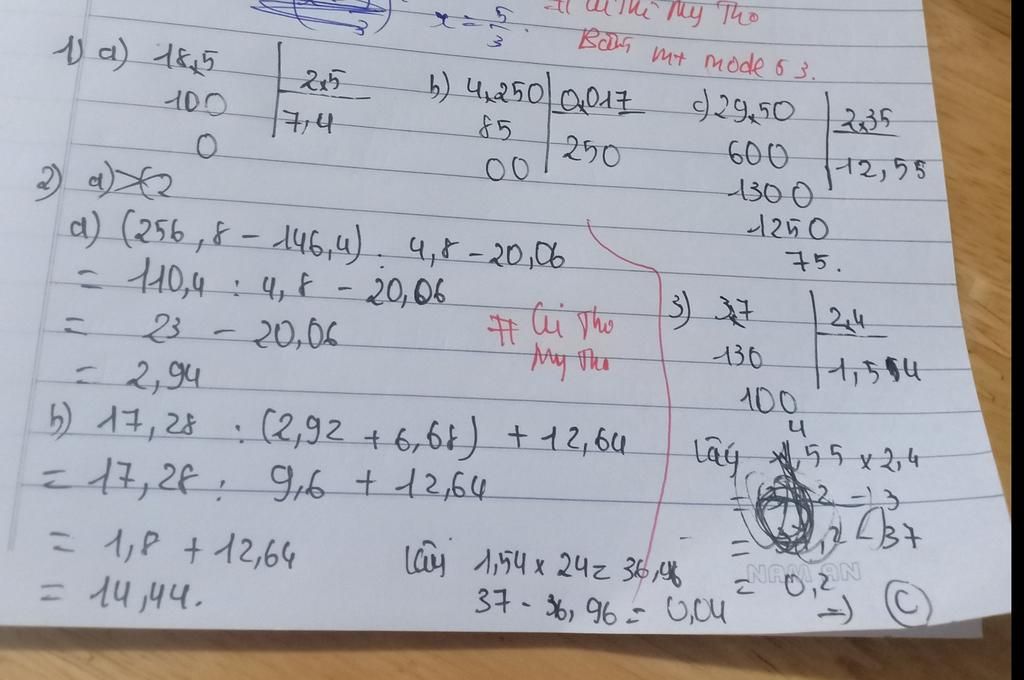 x = 5/3.
# Ci Thi My Tho
3
Bấm M+ mode 6 3.
1) a) 18,5 | 2,5
100 | 7,4
0
b) 4,250 | 0,017
85 | 250
00
c) 29,50 | 2,35
600 | 12,55
1300
1250
75.
2) a)
a) (256,8 - 146,4) : 4,8 - 20,06
= 110,4 : 4,8 - 20,06
= 23 - 20,06
= 2,94
# Ci Tho
My Tho
b) 17,28 : (2,92 + 6,68) + 12,64
= 17,28 : 9,6 + 12,64
= 1,8 + 12,64
= 14,44.
3) 3,7 | 2,4
130
100
4
Lấy 1,55 x 2,4
37
= 0,2
=> C
Lấy 1,54 x 24 = 36,96
37 - 36,96 = 0,04
NAM AN